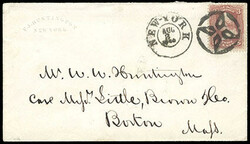 NEW-YORK
AUG
Mr. W. W. Huntington
Care Messrs Little, Brown & Co.
Boston
Mass.